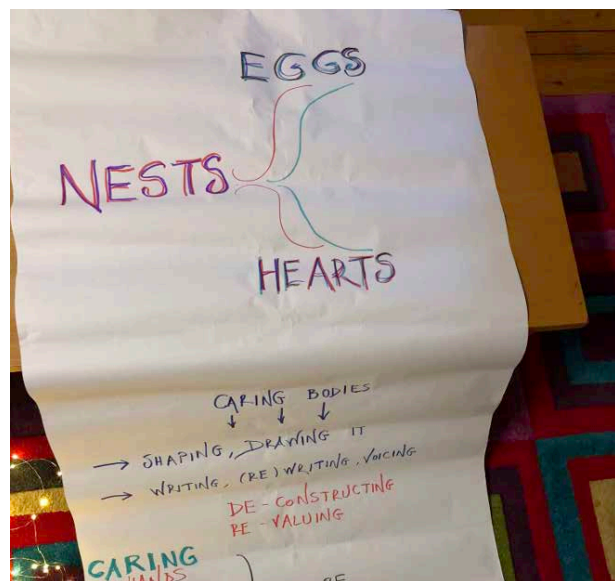 EGGS
NESTS
HEARTS
CARING BODIES
→ SHAPING, DRAWING IT
→ WRITING, (RE)WRITING, VOICING
DE-CONSTRUCTING
RE-VALUING
CARING
HANDS